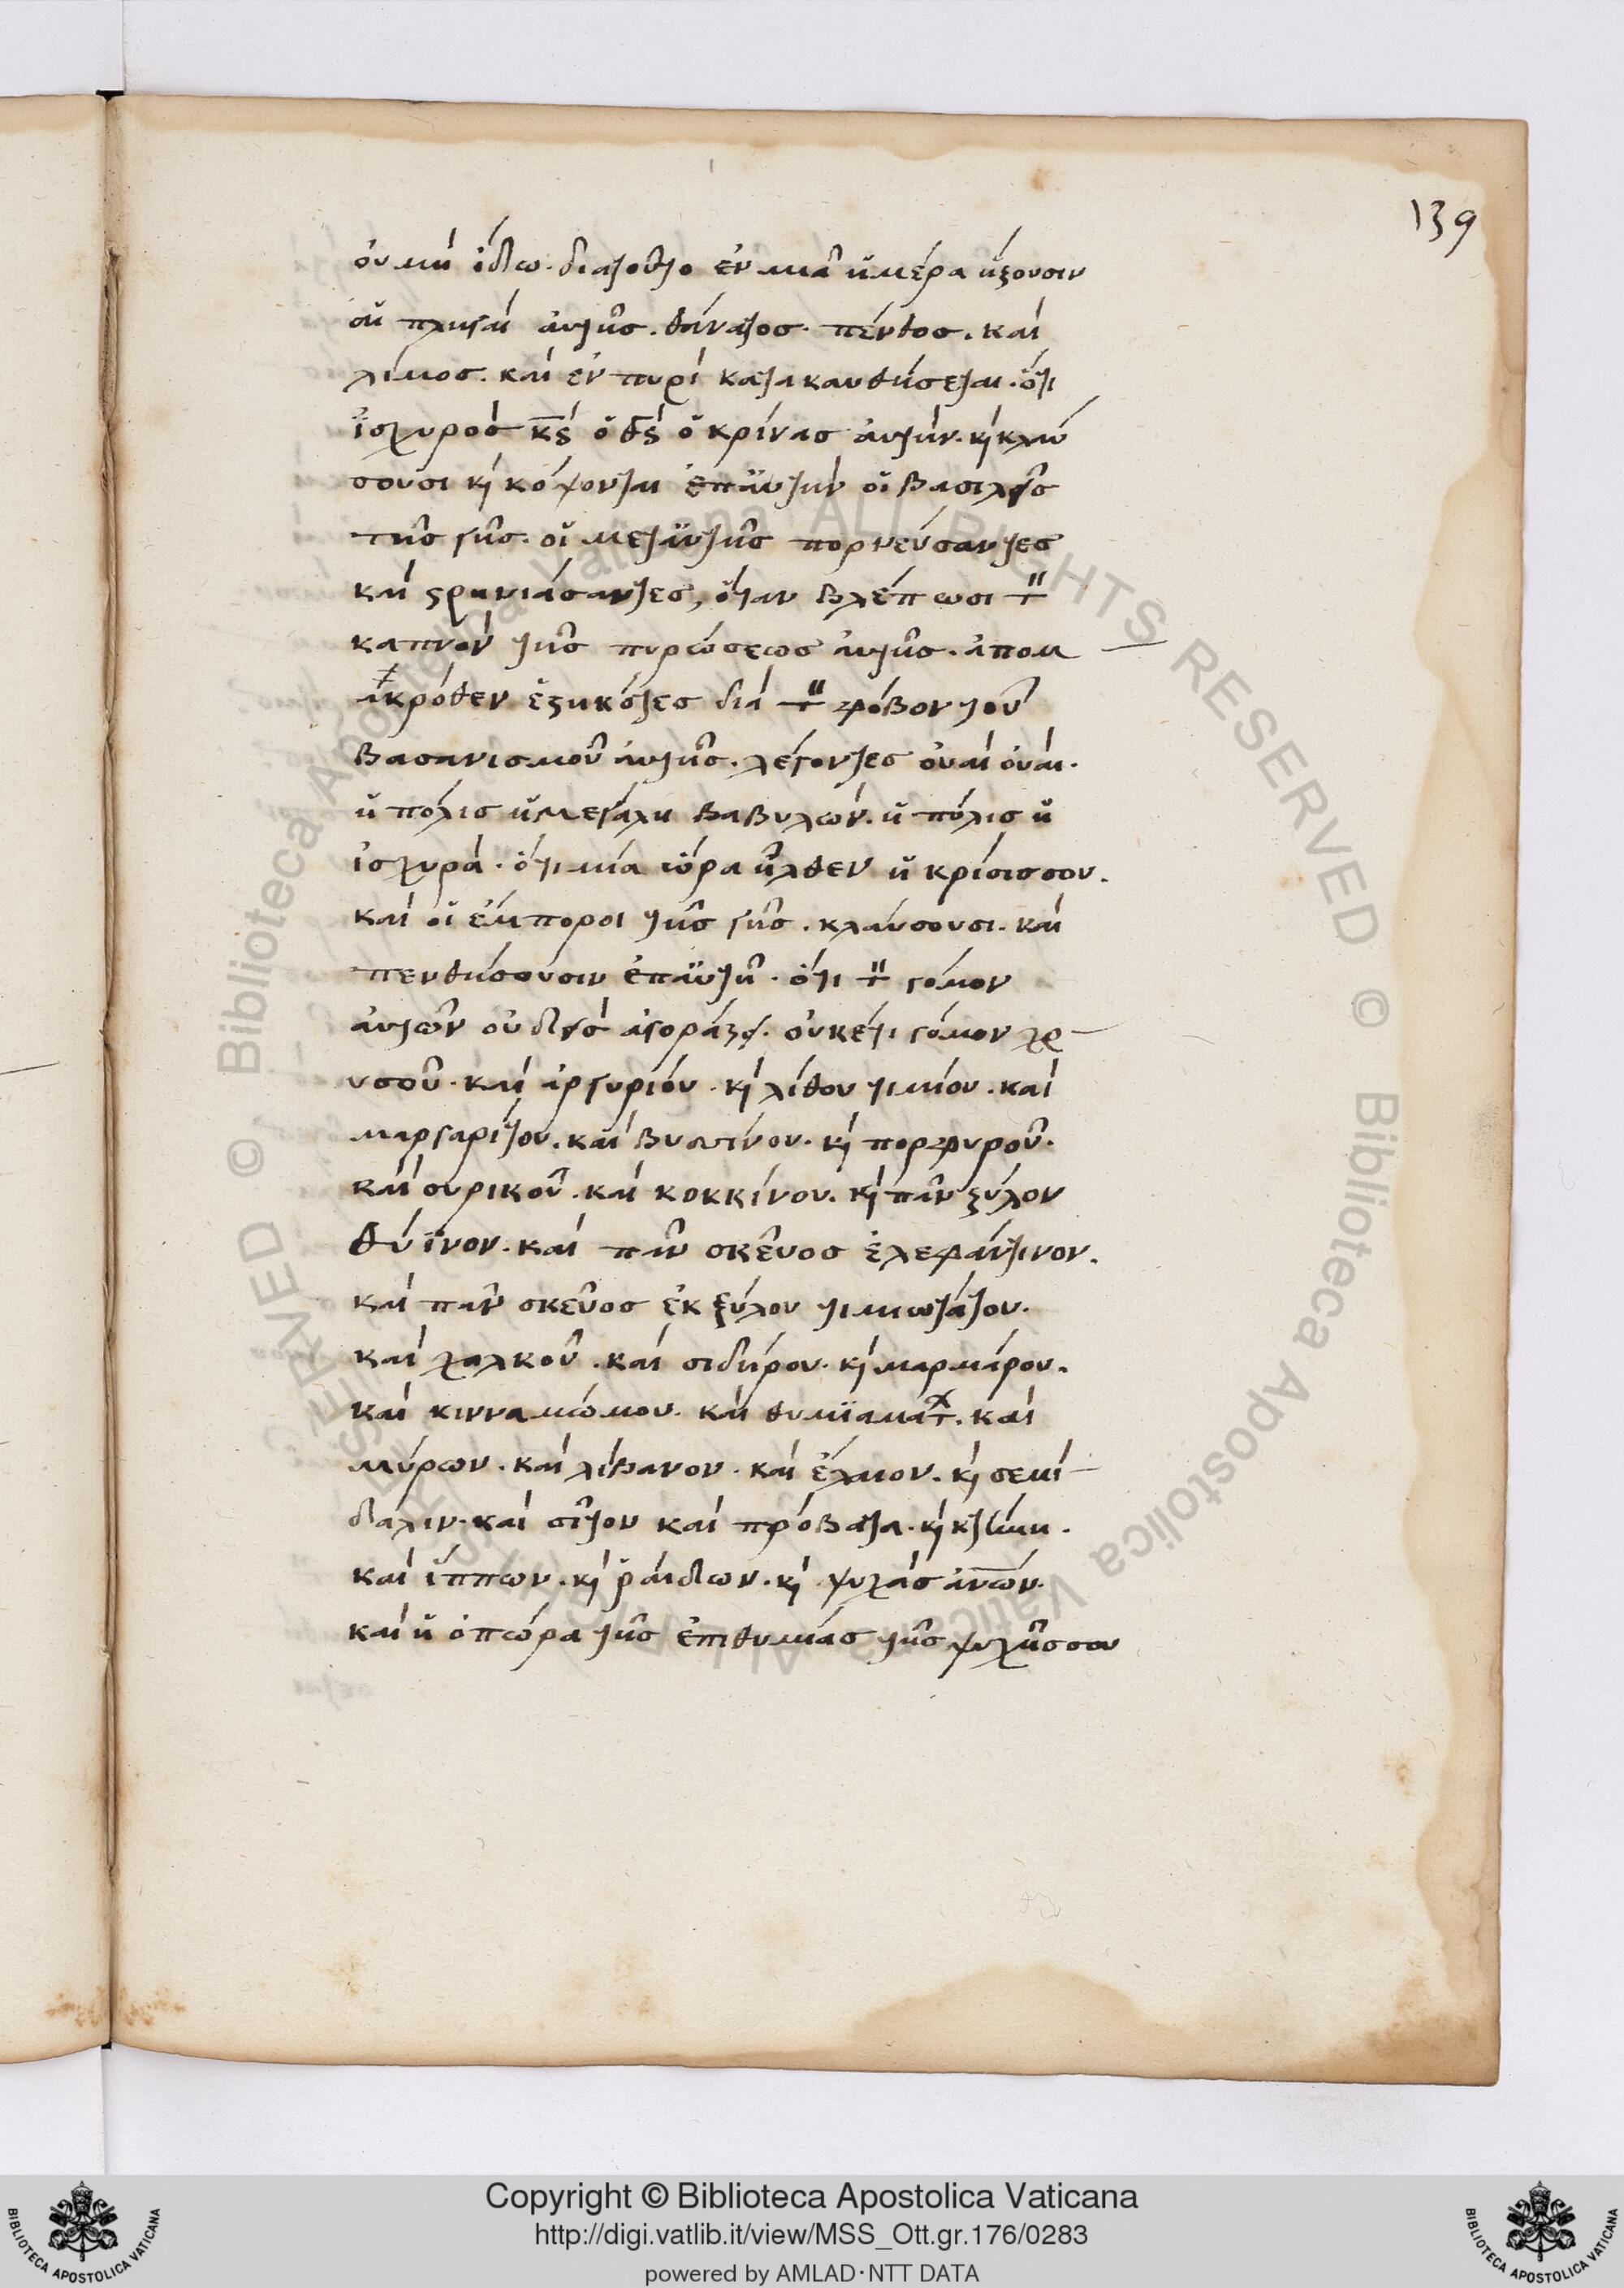 139
οὐ μὴ ἴδω. διατοῦτο ἐν μιᾶ ἡμέρα ἥξουσιν
αἱ πληγαὶ αὐτῆς. θάνατος. πένθος. καὶ
λίμος. καὶ ἐν πυρὶ κατακαυθήσεται. ὅτι
ἰσχυρὸς κς ὁ θς ὁ κρίνας αὐτήν. κὶ κλαύ
σουσι κὶ κόψονται ἐπ' αὐτὴν οἱ βασιλεῖς
τῆς γῆς. οἱ μετ' αὐτῆς πορνεύσαντες
καὶ στρηνιάσαντες, ὅταν βλέπωσι τ
καπνὸν τῆς πυρώσεως αὐτῆς. ἀπομ
ακρόθεν ἑστηκότες διὰ τ φόβον τοῦ
βασανισμοῦ αὐτῆς. λέγοντες οὐαὶ οὐαὶ.
ἡ πόλις ἡ μεγάλη βαβυλών. ἡ πόλις ἡ
ἰσχυρά. ὅτι μία ὥρα ἦλθεν ἡ κρίσις σου.
καὶ οἱ ἔμποροι τῆς γῆς. κλαύσουσι. καὶ
πενθήσουσιν ἐπ' αὐτῆ. ὅτι τ γόμον
αὐτῶν οὐδεὶς ἀγοράζει. οὐκέτι γόμον χρ
υσοῦ. καὶ ἀργυρίου. κὶ λίθου τιμίου. καὶ
μαργαρίτου. καὶ βυσσίνου. κὶ πορφυροῦ.
καὶ συρικοῦ. καὶ κοκκίνου. κὶ πᾶν ξύλον
θύϊνον. καὶ πᾶν σκεῦος ἐλεφάντινον.
καὶ πᾶν σκεῦος ἐκ ξύλου τιμιωτάτου.
καὶ χαλκοῦ. καὶ σιδήρου. κὶ μαρμάρου.
καὶ κινναμώμου. καὶ θυμϊαματ. καὶ
μύρων. καὶ λίβανον. καὶ ἔλαιον. κὶ σεμί
δαλιν. καὶ σῖτον καὶ πρόβατα. κὶ κτήνη.
καὶ ἵππων. κὶ ῥαίδων. κὶ ψυχὰς ανων.
καὶ ἡ ὀπώρα τῆς ἐπιθυμίας τῆς ψυχῆς σου
Copyright © Biblioteca Apostolica Vaticana
http://digi.vatlib.it/view/MSS_Ott.gr.176/0283
powered by AMLAD·NTT DATA
BIBLIOTECA APOSTOLICA VATICANA
BIBLIOTECA APOSTOLICA VATICANA
© Biblioteca Apostolica Vaticana ALL RIGHTS RESERVED
© Biblioteca Apostolica Vaticana ALL RIGHTS RESERVED